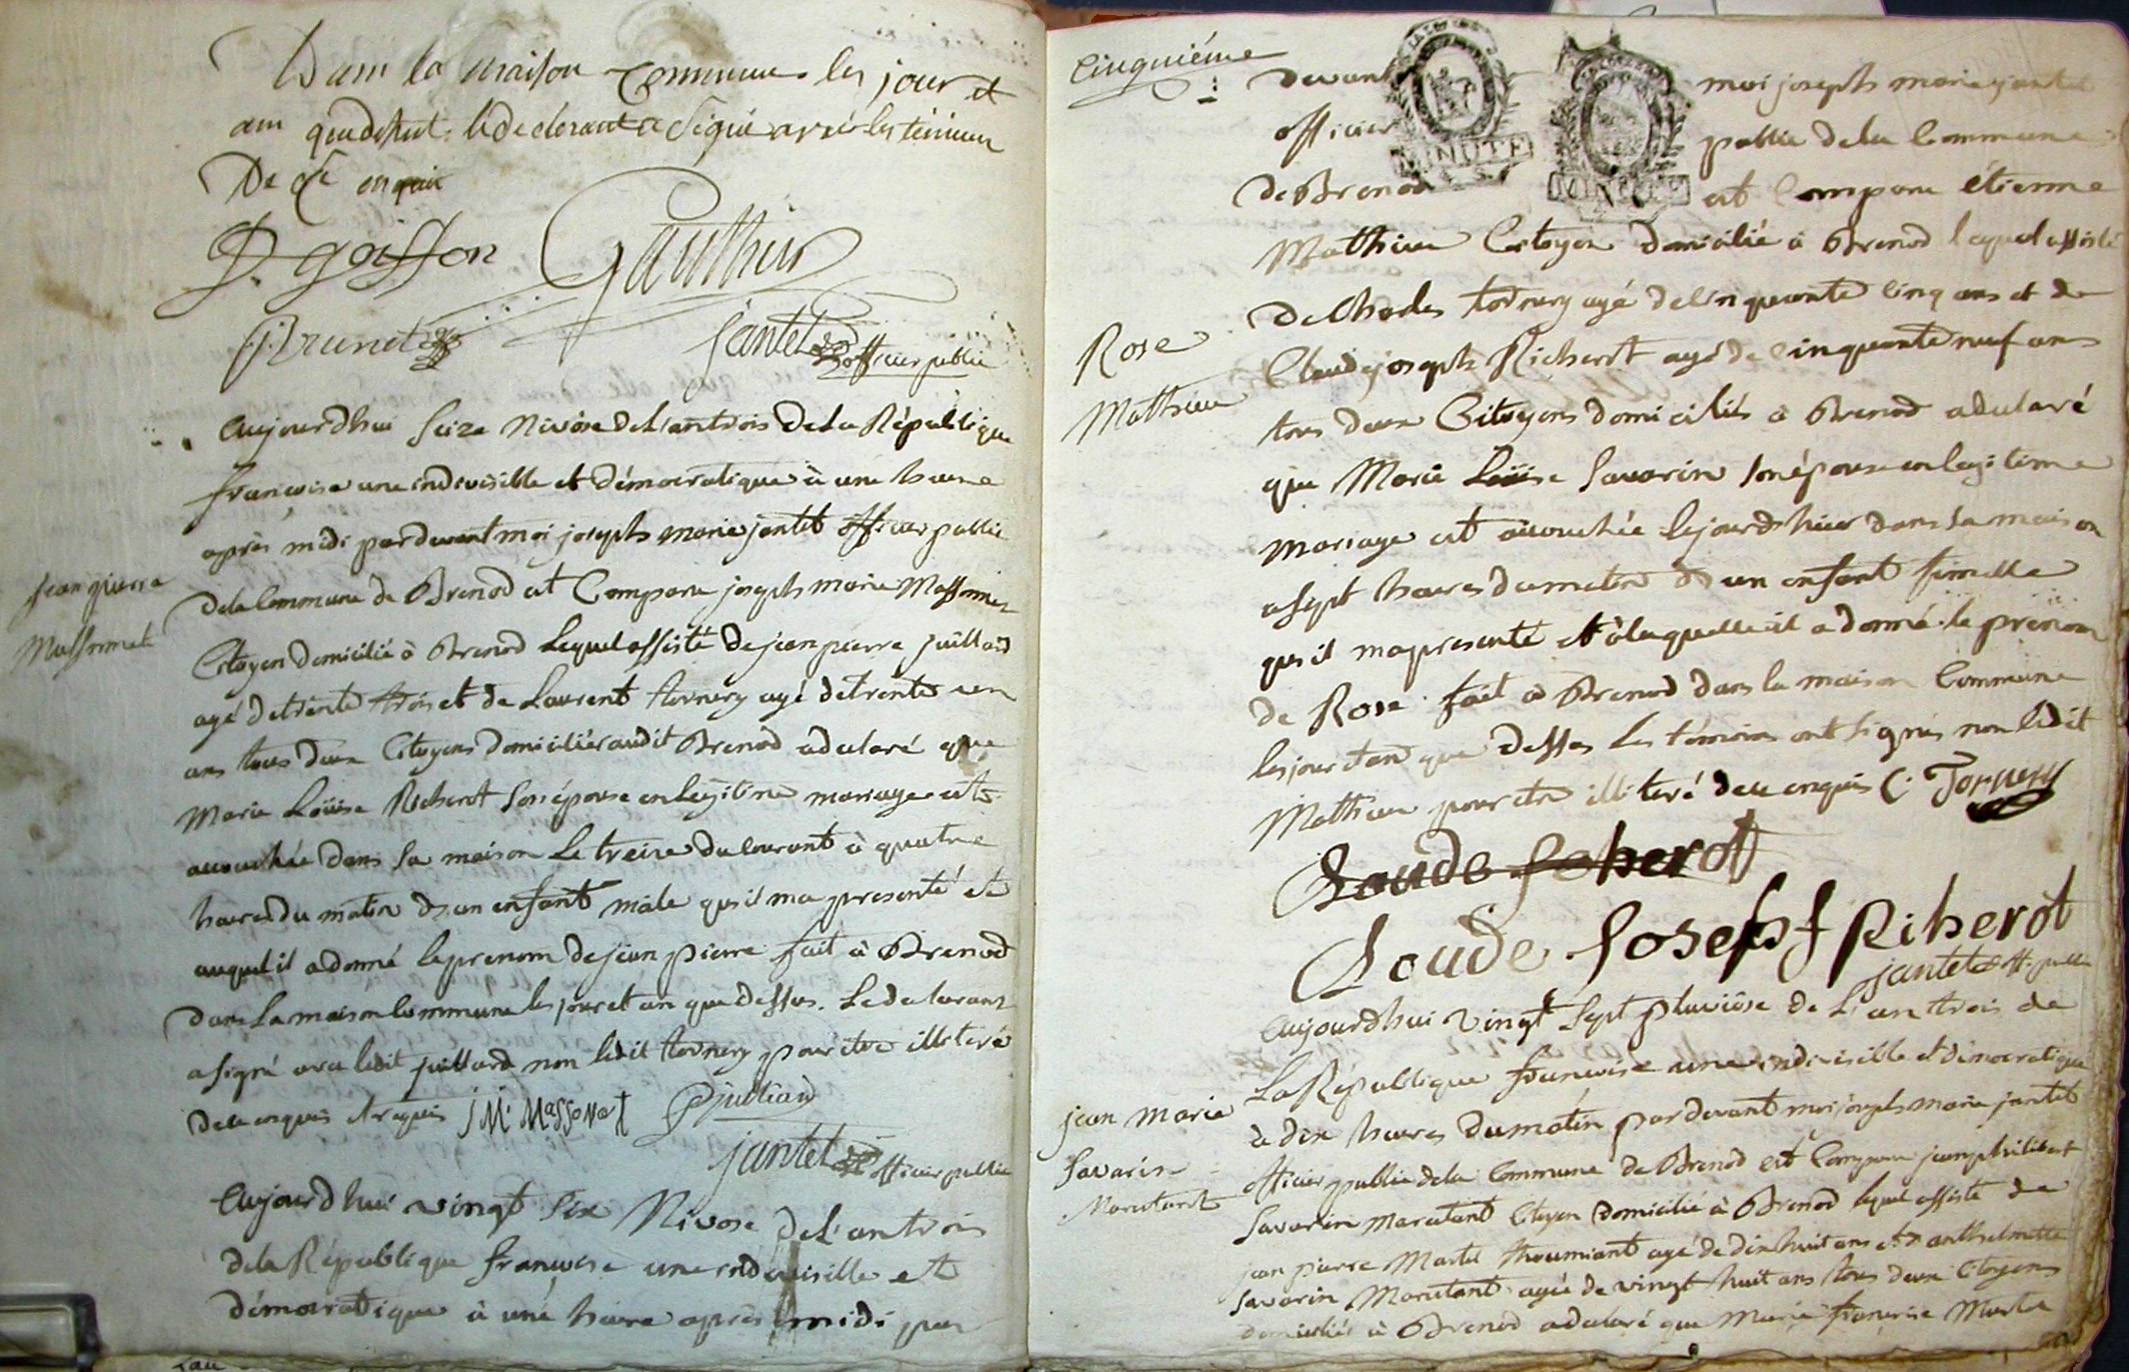 Dans la maison Commune les jour et
an que dessus. le declarant a signé avec les témoins
De ce enquis
J. goiffon Gauthier
Brunet
jantet officier public
aujourdhui seize Nivôse del'antrois dela République
francoise une indivisible et démocratique à une heure
après midi pardevant moi joseph marie jantet officier public
jean pierre
Massonnet
dela Commune de Brenod est Comparu joseph marie Massonnet
Citoyen domicilié à Brenod lequel assisté de jean pierre juillard
agé detrente trois et de Laurent tornery agé detrente un
ans tous deux Citoyens domiciliés audit Brenod adeclaré que
Marie Loüise Richerot son épouse en legitime mariage est
accouchée dans sa maison le treize du courant à quatre
heures du matin d'un enfant mâle qu'il ma presenté et
auquel il adonné leprenom dejean pierre fait à Brenod
dans la maison Commune les jour et an que dessus. Ledeclarant
asigné avec ledit juillard non ledit tornery pour être illiteré
dece enquis et requis J M. MassoNat P juliard
jantet officier public
aujourdhui vingt six Nivose del'antrois
dela République francoise une indivisible et
démocratique à une heure après midi par
Cinquiéme
devant moi joseph marie jantet
officier public dela Commune
de Brenod est Comparu étienne
MINUTE
MINUTE
Mathieu Citoyen domicilié à Brenod lequel assisté
de Charles tornery agé de Cinquante Cinq ans et de
Rose
Mathieu
Claude joseph Richerot agé de Cinquante neuf ans
tous deux Citoyens domiciliés à Brenod adeclaré
que Marie Loüise Savarin son épouse en legitime
mariage est accouchée lejourdhier dans sa maison
asept heures dumatin d'un enfant fémelle
qu'il mapresenté et àlaquelle il a donné le prenom
de Rose fait à Brenod dans la maison Commune
les jour et an que dessus Les témoins ont signés non ledit
Mathieu pour etre illiteré dece enquis C. Tornery
Claude Joseph Riherot
jantet off. public
aujourdhui vingt sept pluviôse de L'an trois de
La République francoise une indivisible et démocratique
à dix heures dumatin pardevant moi joseph marie jantet
jean Marie
Savarin
Marutant
officier public dela Commune de Brenod est Comparu jean philibert
Savarin Marutant Citoyen domicilié à Brenod lequel assisté de
jean pierre Martel agé de dix huit ans et d'anthelmette
Savarin Marutant agée de vingt huit ans tous deux Citoyens
domiciliés à Brenod adeclaré que Marie francoise